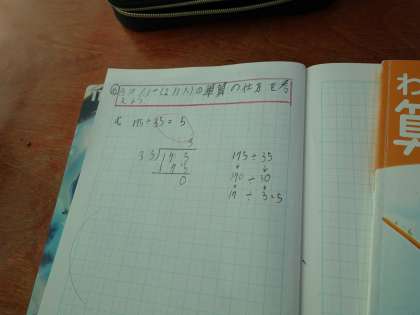 の筆算の仕方を考
えよう
式 175÷35=5
5
35)175
175
0
175÷35
170÷30
17÷3=5
わ
算